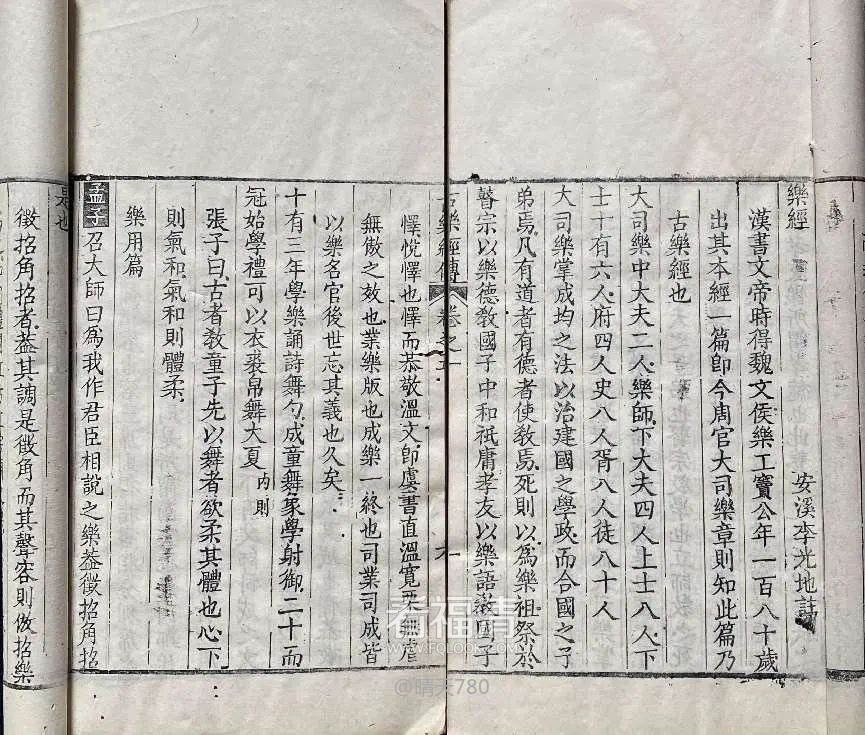 樂經
安溪李光地註
漢書文帝時得魏文侯樂工竇公年一百八十歲
出其本經一篇即今周官大司樂章則知此篇乃
古樂經也
大司樂中大夫二人樂師下大夫四人上士八人下
士十有六人府四人史八人胥八人徒八十人
大司樂掌成均之法以治建國之學政而合國之子
弟焉凡有道者有德者使教焉死則以爲樂祖祭於
瞽宗以樂德教國子中和祇庸孝友以樂語教國子
古樂經傳
卷之
懌悅懌也懌而恭敬溫文即虞書直溫寬栗無虐
無傲之效也業樂版也成樂一終也司業司成皆
以樂名官後世忘其義也久矣
十有三年學樂誦詩舞勺成童舞象學射御二十而
冠始學禮可以衣裘帛舞大夏內則
張子曰古者教童子先以舞者欲柔其體也心下
則氣和氣和則體柔
樂用篇
孟子召大師曰爲我作君臣相說之樂葢徵招角招
是也
徵招角招者葢其調是徵角而其聲容則倣招樂
看福清
WWW.FOLOOK.COM
@晴天780